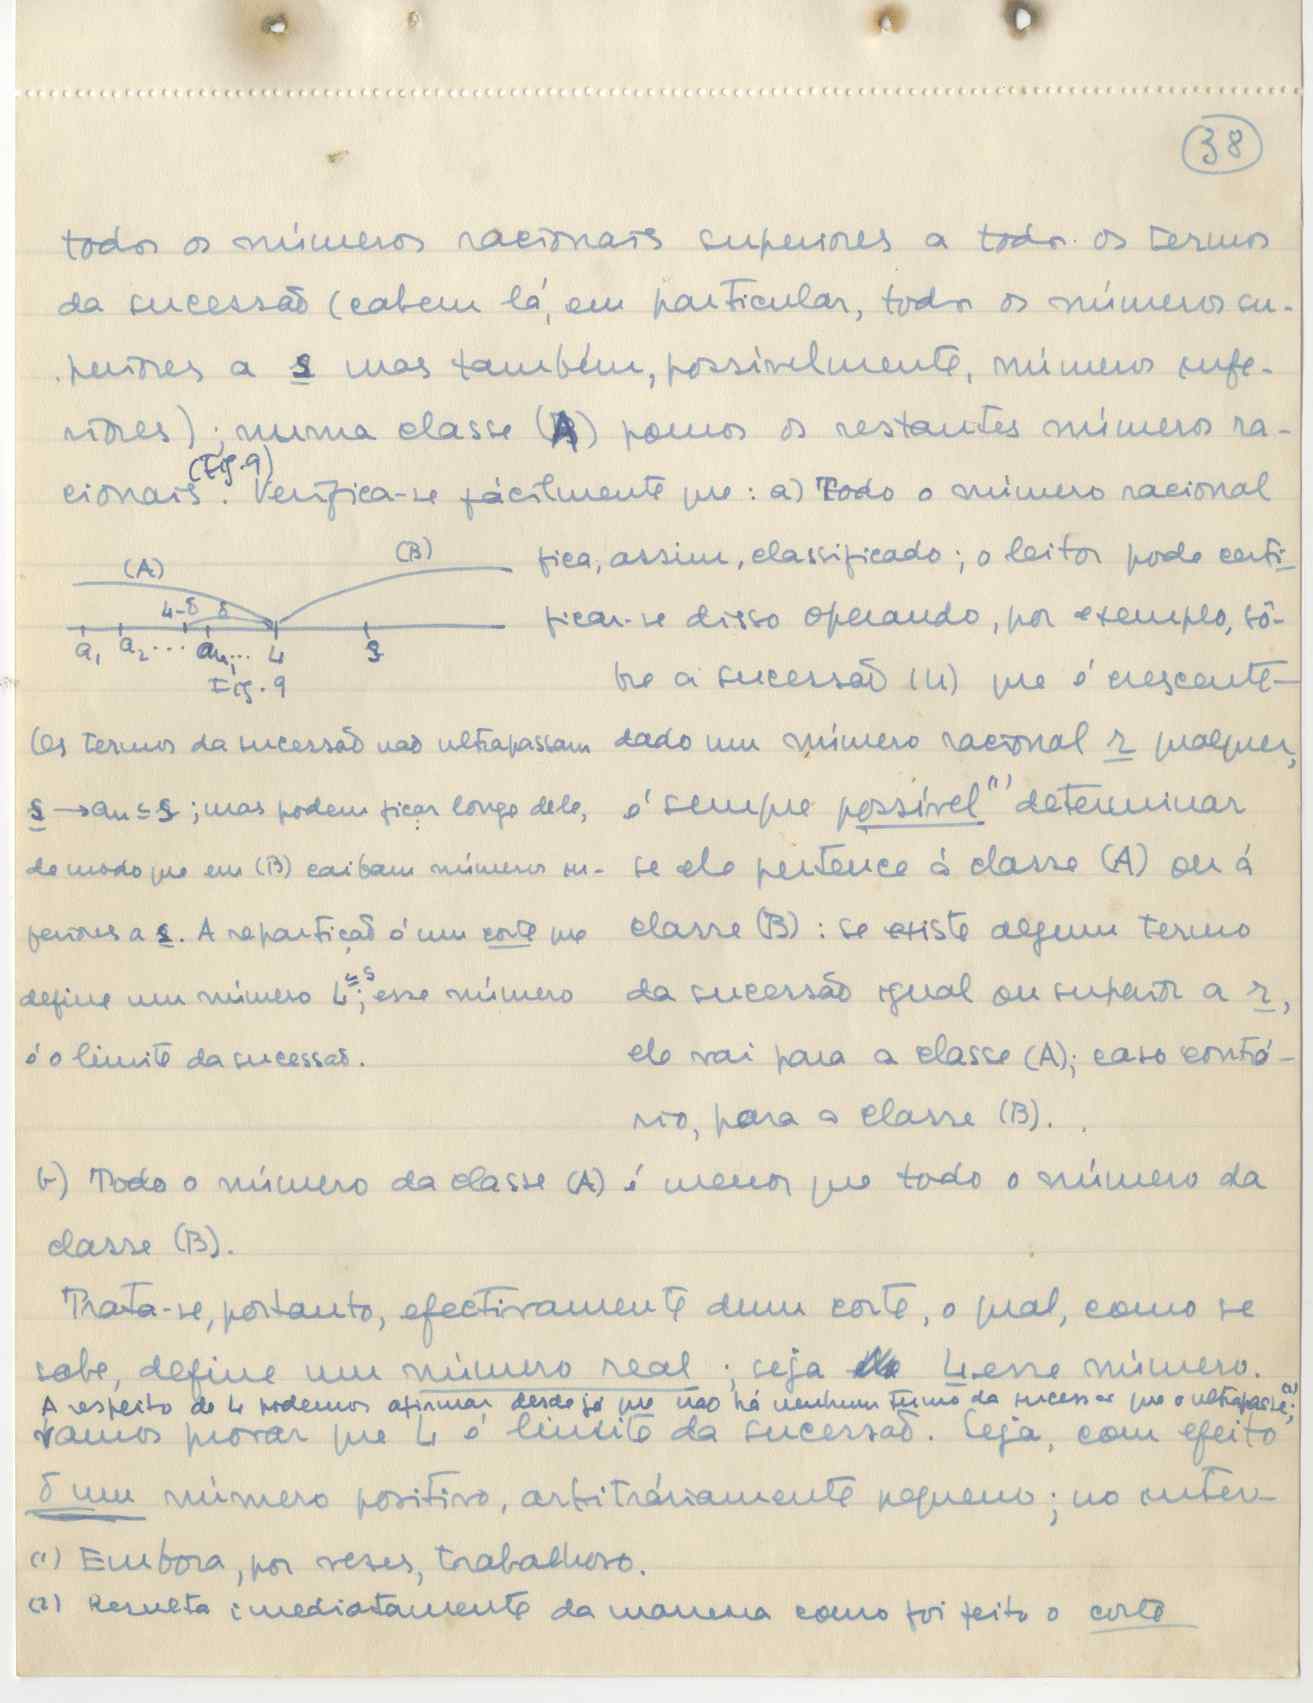 38
todos os números racionais superiores a todos os termos
da sucessão (cabem lá, em particular, todos os números su-
periores a s mas também, possivelmente, números infe-
riores); numa classe (A) pomos os restantes números ra-
(Fig. 9)
cionais. Verifica-se fàcilmente que: a) Todo o número racional
fica, assim, classificado; o leitor pode certi-
ficar-se disso operando, por exemplo, sô-
bre a sucessão (11) que é crescente —
dado um número racional r qualquer,
é sempre possível (1) determinar
se ele pertence à classe (A) ou à
classe (B): se existe algum termo
da sucessão igual ou superior a r,
ele vai para a classe (A); caso contrá-
rio, para a classe (B).
(A) (B)
L-δ δ
a₁ a₂ ... aₙ, ... L s
Fig. 9
(Os termos da sucessão não ultrapassam
s → aₙ ≤ s; mas podem ficar longe dele,
de modo que em (B) caibam números su-
periores a s. A repartição é um corte que
define um número L ≤ s; esse número
é o limite da sucessão.
b) Todo o número da classe (A) é menor que todo o número da
classe (B).
Trata-se, portanto, efectivamente dum corte, o qual, como se
sabe, define um número real; seja L esse número.
A respeito de L podemos afirmar desde já que não há nenhum termo da sucessão que o ultrapasse (2);
vamos provar que L é limite da sucessão. Seja, com efeito
δ um número positivo, arbitràriamente pequeno; no inter-
(1) Embora, por vezes, trabalhoso.
(2) Resulta imediatamente da maneira como foi feito o corte